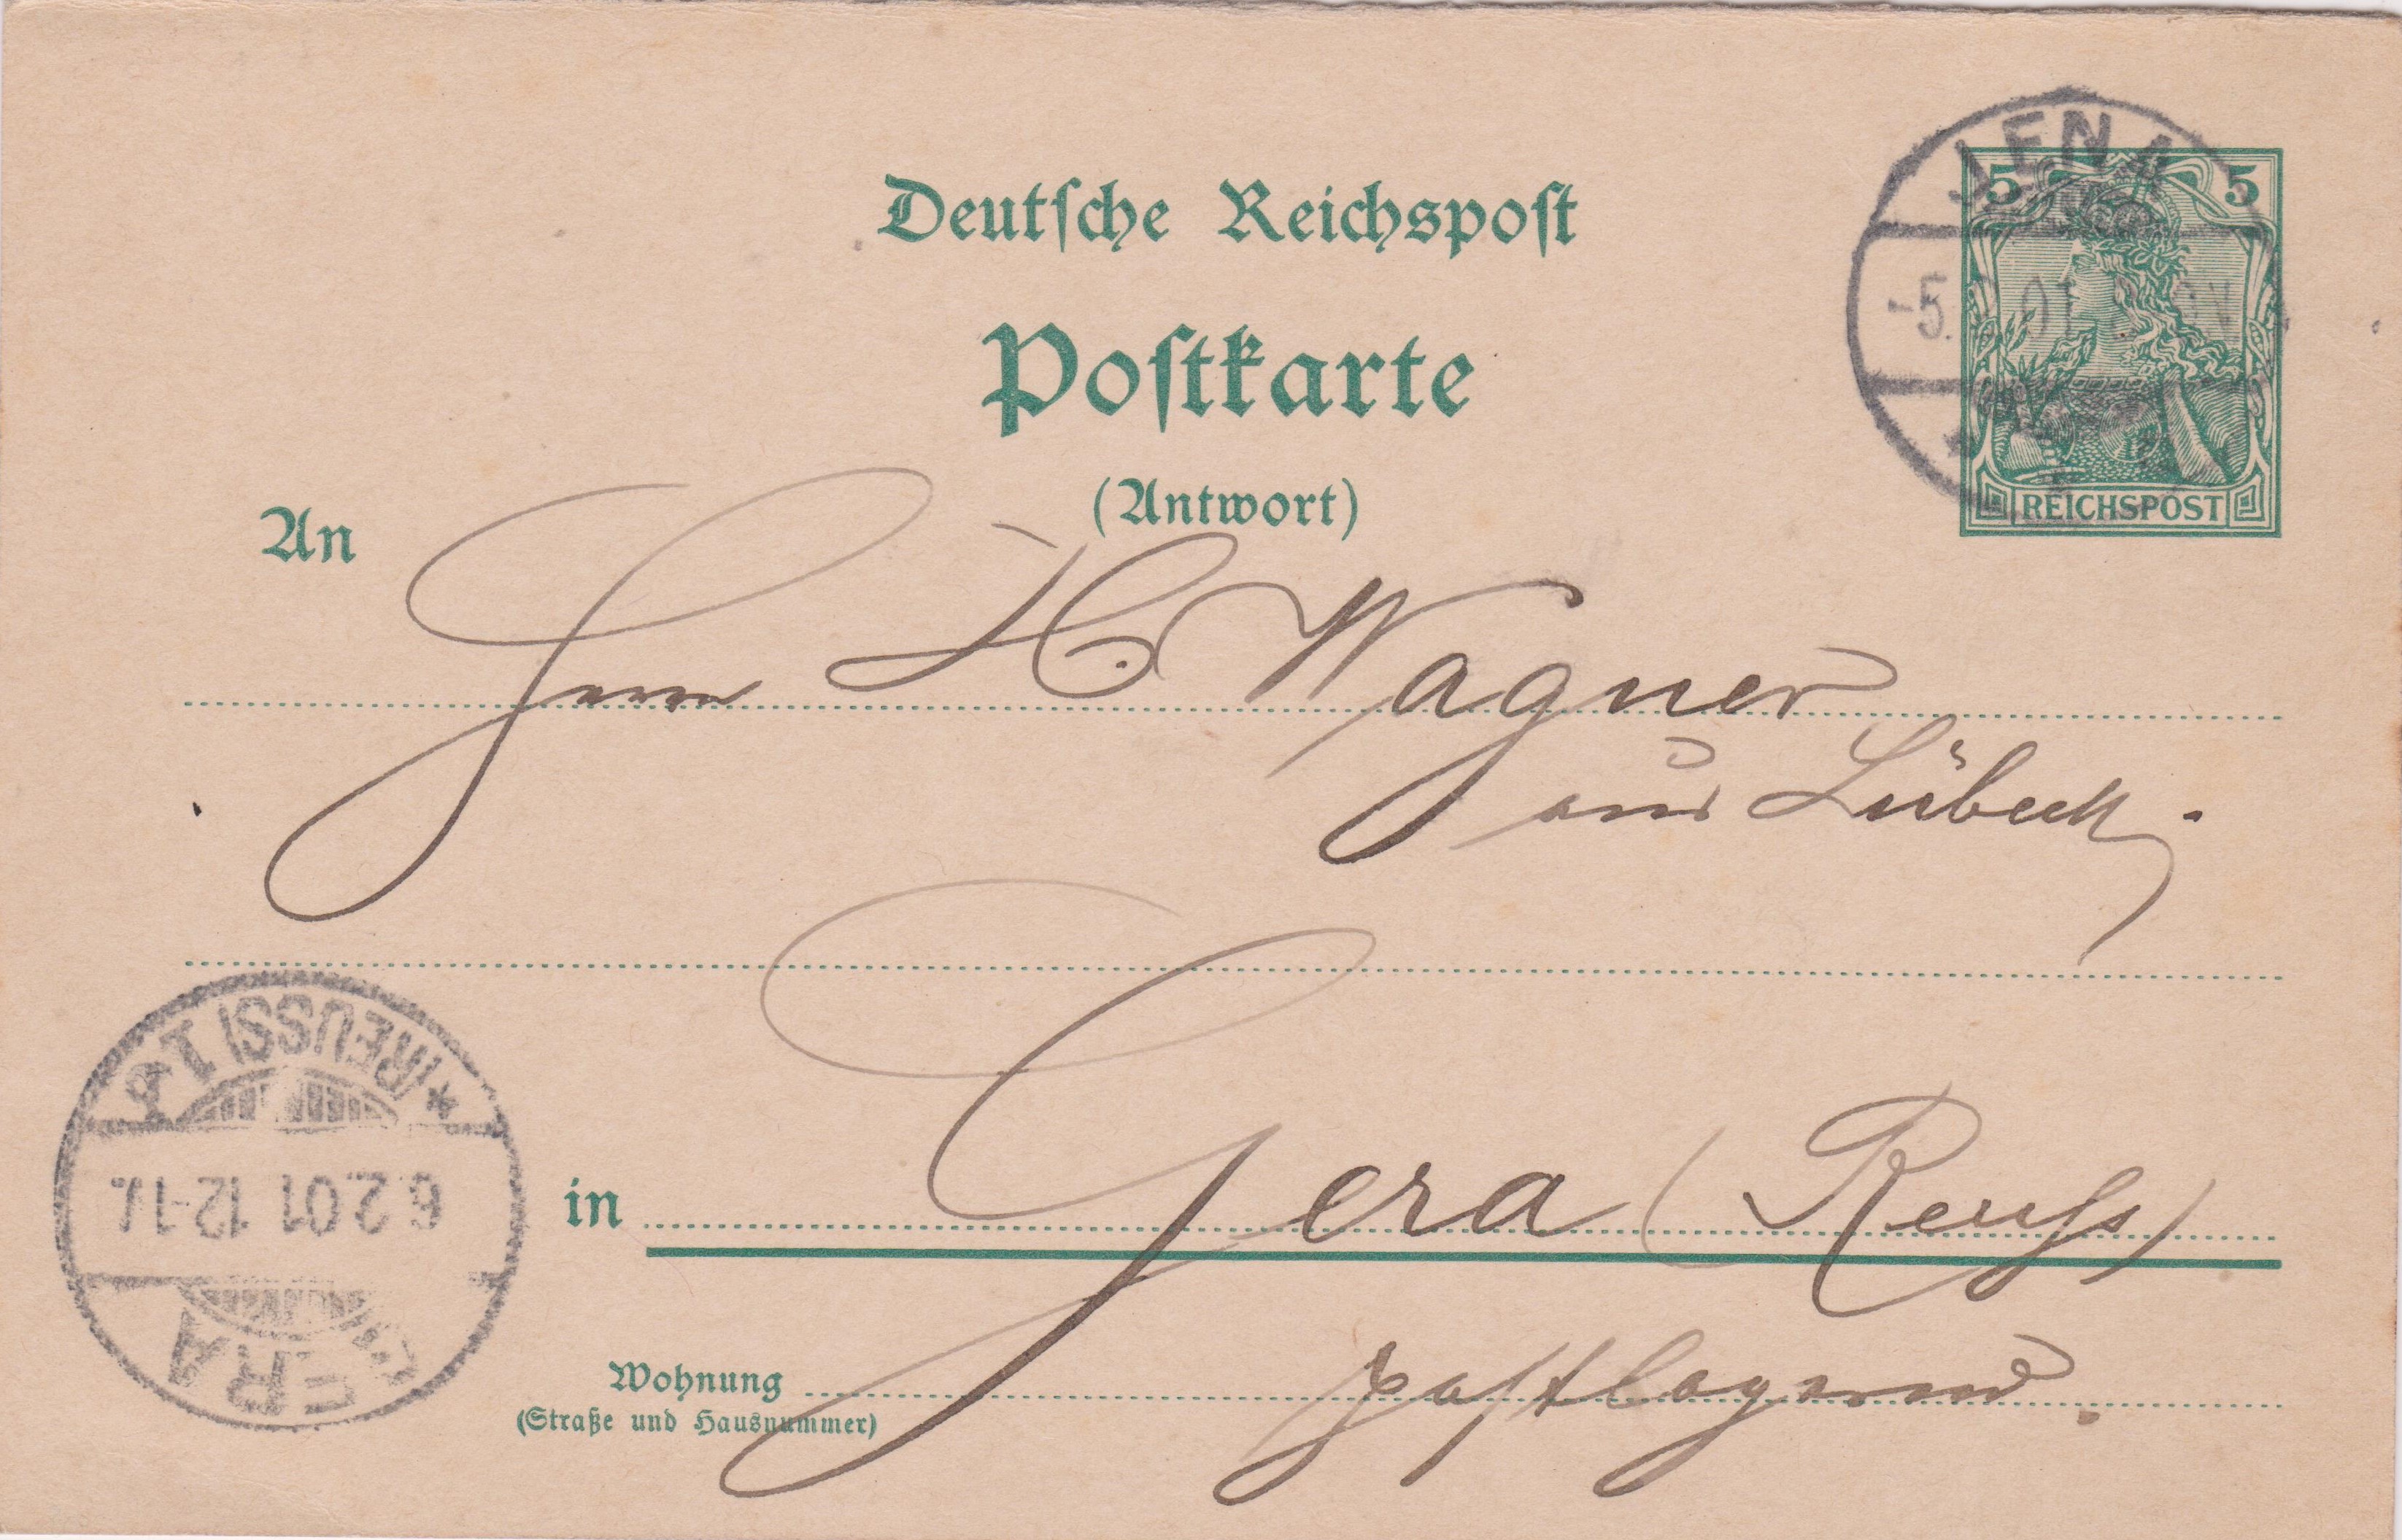 Deutsche Reichspost
Postkarte
(Antwort)
JENA
-5. 01
5 5
REICHSPOST
An
Herrn H. Wagner
aus Lübeck.
in Gera (Reuss)
Wohnung postlagernd.
(Straße und Hausnummer)
GERA
6.2.01 12-1
* (REUSS) 1